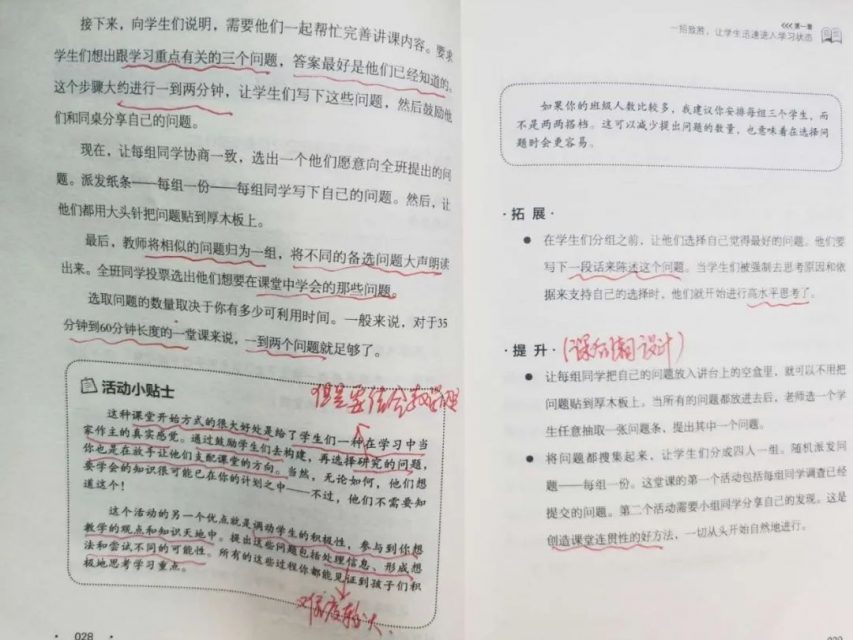 接下来，向学生们说明，需要他们一起帮忙完善讲课内容。要求
学生们想出跟学习重点有关的三个问题，答案最好是他们已经知道的。
这个步骤大约进行一到两分钟，让学生们写下这些问题，然后鼓励他
们和同桌分享自己的问题。
现在，让每组同学协商一致，选出一个他们愿意向全班提出的问
题。派发纸条——每组一份——每组同学写下自己的问题。然后，让
他们都用大头针把问题贴到厚木板上。
最后，教师将相似的问题归为一组，将不同的备选问题大声朗读
出来。全班同学投票选出他们想要在课堂中学会的那些问题。
选取问题的数量取决于你有多少可利用时间。一般来说，对于35
分钟到60分钟长度的一堂课来说，一到两个问题就足够了。
活动小贴士
但是要结合教学
这种课堂开始方式的很大好处是给了学生们一种在学习中当
家作主的真实感觉。通过鼓励学生们去构建，再选择研究的问题，
你也是在放手让他们支配课堂的方向。当然，无论如何，他们想
要学会的知识很可能已在你的计划之中——不过，他们不需要知
道这个！
这个活动的另一个优点就是调动学生的积极性，参与到你想
教学的观点和知识天地中。提出这些问题包括处理信息、形成想
法和尝试不同的可能性。所有的这些过程你都能见证到孩子们积
极地思考学习重点。
难度较大
028
<<< 第一章
一招致胜，让学生迅速进入学习状态
如果你的班级人数比较多，我建议你安排每组三个学生，而
不是两两搭档。这可以减少提出问题的数量，也意味着在选择问
题时会更容易。
·拓 展·
● 在学生们分组之前，让他们选择自己觉得最好的问题。他们要
写下一段话来陈述这个问题。当学生们被强制去思考原因和依
据来支持自己的选择时，他们就开始进行高水平思考了。
·提 升·（课后 设计）
● 让每组同学把自己的问题放入讲台上的空盒里，就可以不用把
问题贴到厚木板上。当所有的问题都放进去后，老师选一个学
生任意抽取一张问题条，提出其中一个问题。
● 将问题都搜集起来，让学生们分成四人一组。随机派发问
题——每组一份。这堂课的第一个活动包括每组同学调查已经
提交的问题。第二个活动需要小组同学分享自己的发现。这是
创造课堂连贯性的好方法，一切从头开始自然地进行。